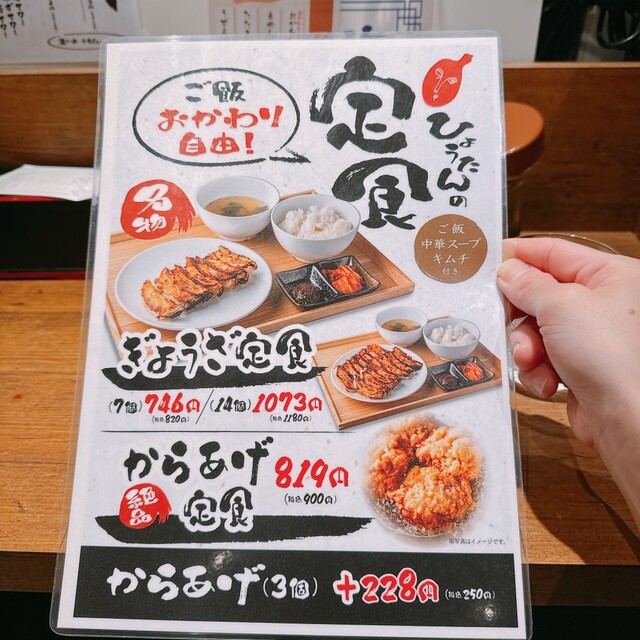 ご飯
おかわり
自由!
ひょうたんの
定食
ご飯
中華スープ
キムチ
付き
名物
ぎょうざ定食
(7個)746円/(14個)1073円
(税込820円) (税込1180円)
からあげ
絶品
定食
819円
(税込900円)
※写真はイメージです。
からあげ(3個) +228円(税込250円)